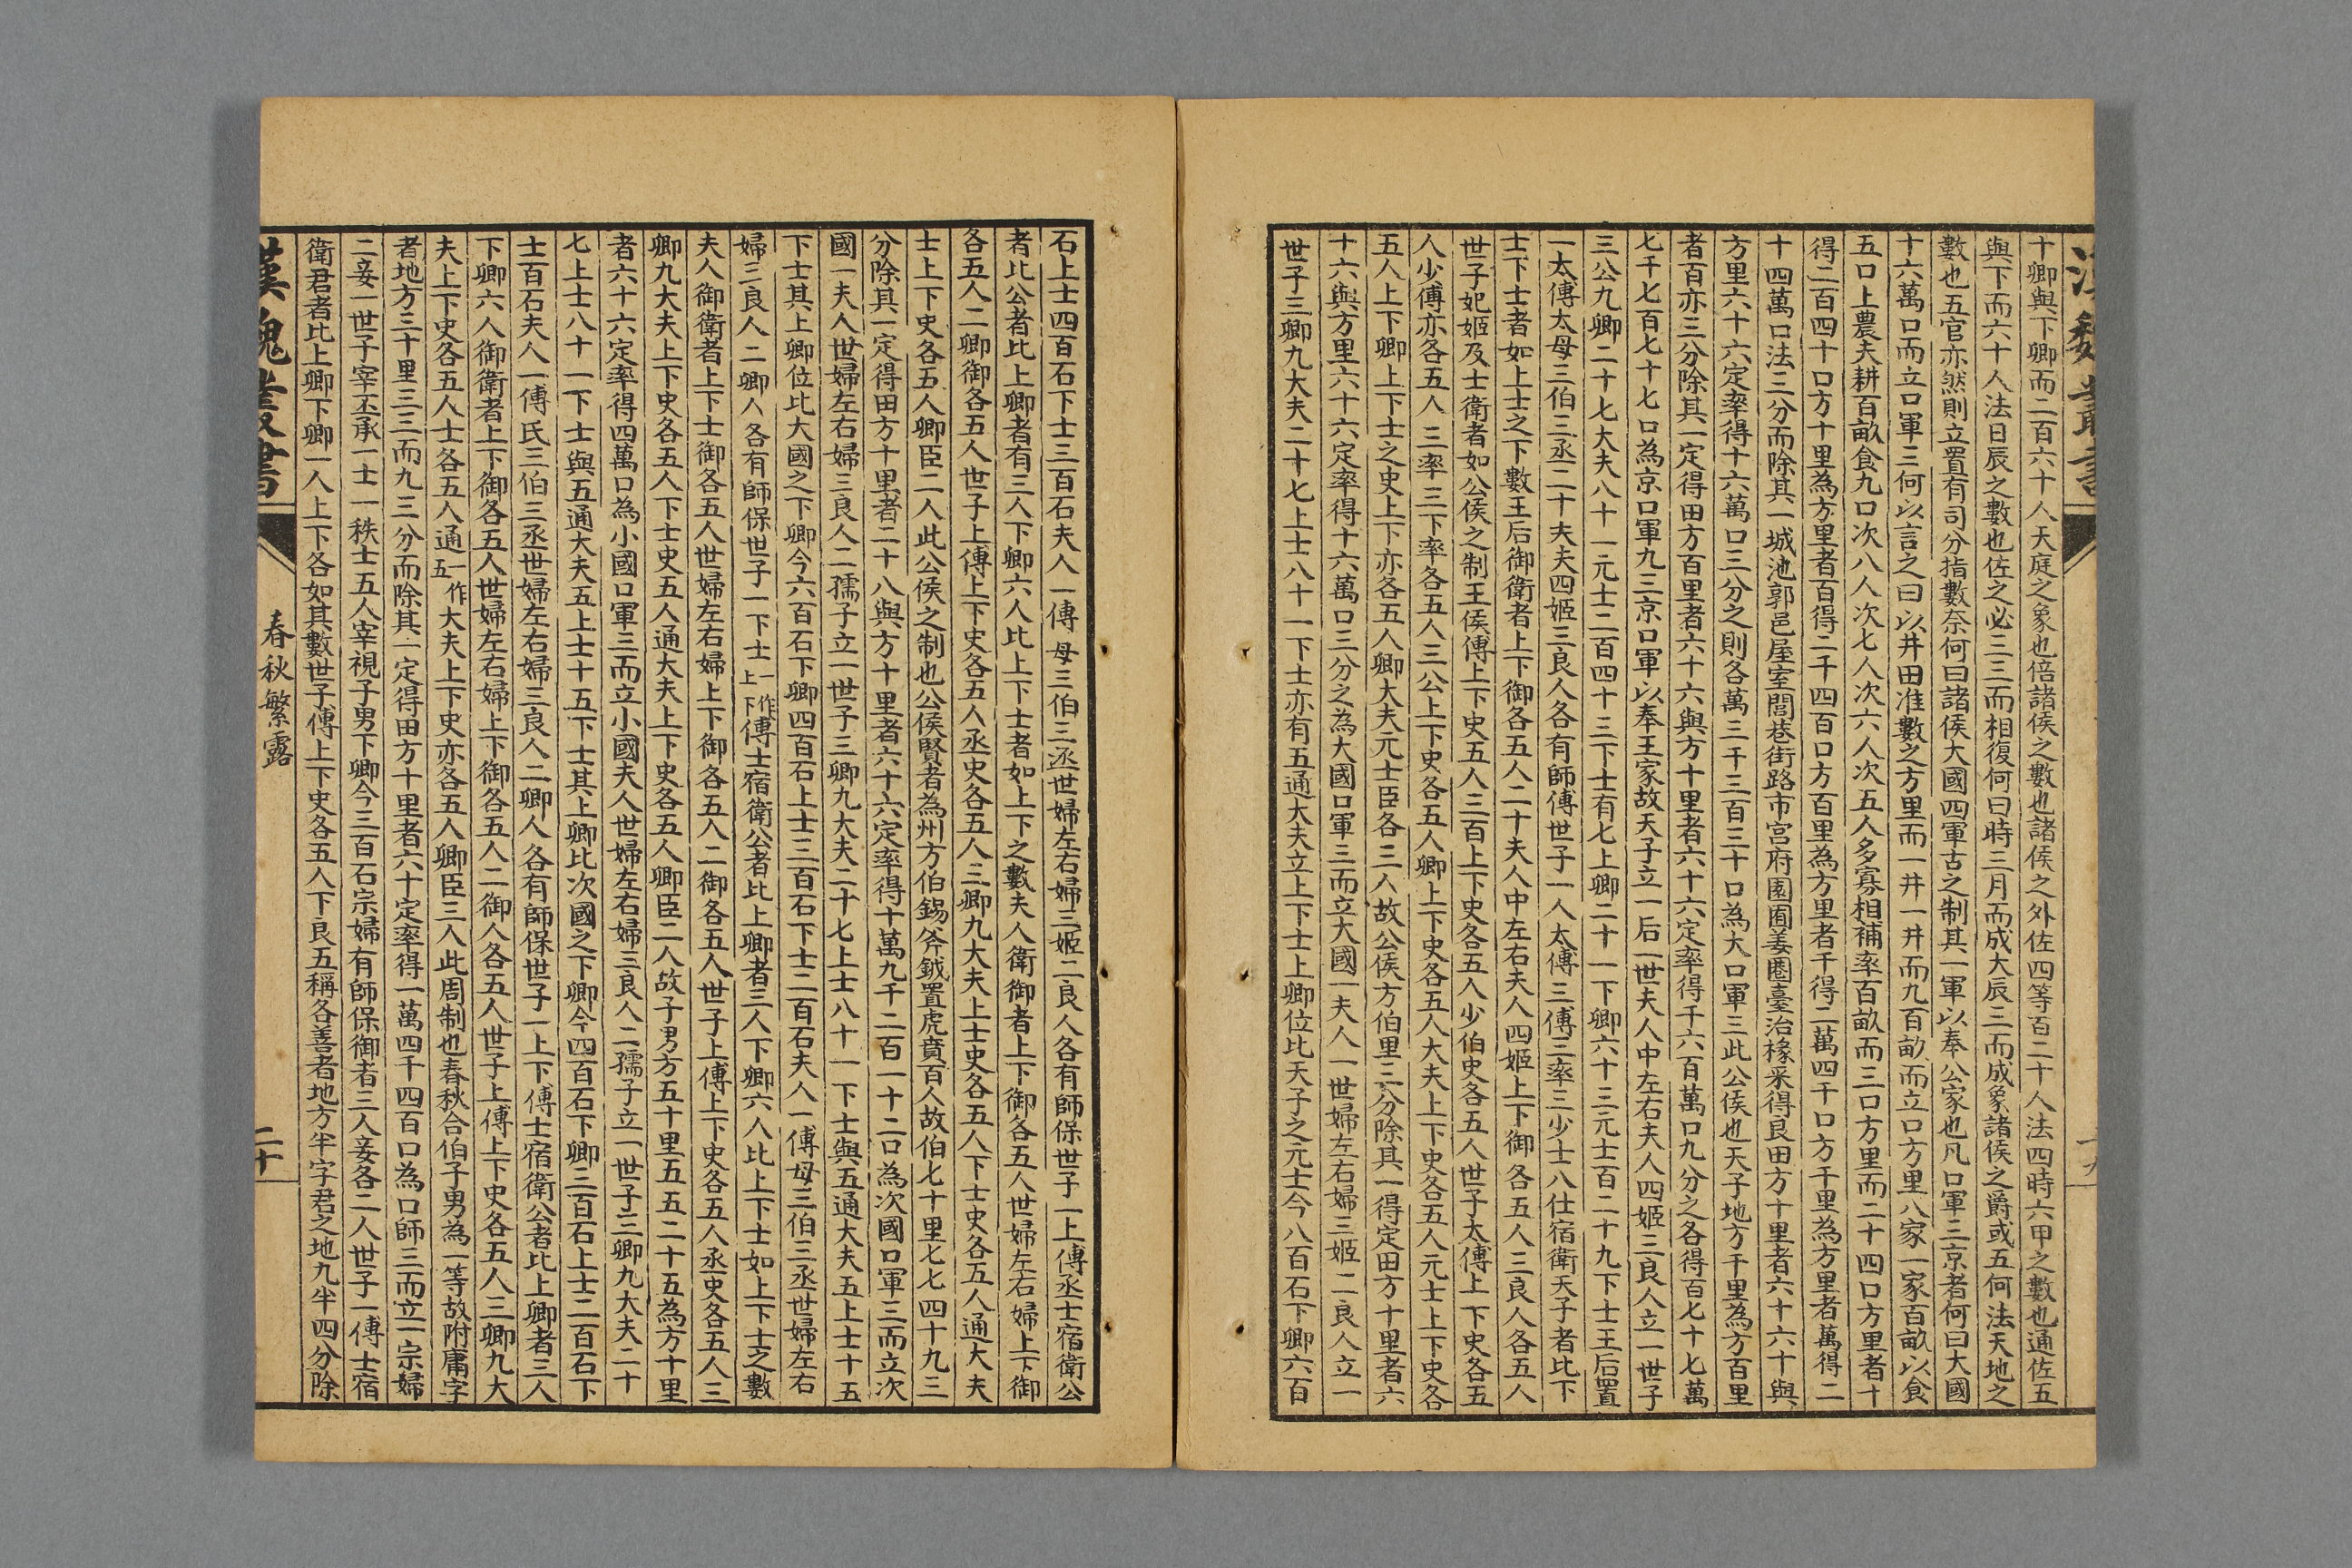 漢魏叢書
十卿與下卿而二百六十人天庭之象也倍諸侯之數也諸侯之外佐四等百二十人法四時六甲之數也通佐五
與下而六十人法日辰之數也佐之必三三而相復何曰時三月而成大辰三而成象諸侯之爵或五何法天地之
數也五官亦然則立置有司分指數奈何曰諸侯大國四軍古之制其一軍以奉公家也凡口軍三京者何曰大國
十六萬口而立口軍三何以言之曰以井田准數之方里而一井一井而九百畝而立口方里八家一家百畝以食
五口上農夫耕百畝食九口次八人次七人次六人次五人多寡相補率百畝而三口方里而二十四口方里者十
得二百四十口方十里為方里者百得二千四百口方百里為方里者千得二萬四千口方千里為方里者萬得二
十四萬口法三分而除其一城池郭邑屋室閭巷街路市宮府園囿萎圈臺治椽采得良田方十里者六十六十與
方里六十六定率得十六萬口三分之則各萬三千三百三十口為大口軍三此公侯也天子地方千里為方百里
者百亦三分除其一定得田方百里者六十六與方十里者六十六定率得千六百萬口九分之各得百七十七萬
七千七百七十七口為京口軍九三京口軍以奉王家故天子立一后一世夫人中左右夫人四姬三良人立一世子
三公九卿二十七大夫八十一元士二百四十三下士有七上卿二十一下卿六十三元士百二十九下士王后置
一太傅太母三伯三丞二十夫夫四姬三良人各有師傅世子一人太傅三傅三率三少士八仕宿衛天子者比下
士下士者如上士之下數王后御衛者上下御各五人二十夫人中左右夫人四姬上下御各五人三良人各五人
世子妃姬及士衛者如公侯之制王侯傅上下史五人三百上下史各五人少伯史各五人世子太傅上下史各五
人少傅亦各五人三率三下率各五人三公上下史各五人卿上下史各五人大夫上下史各五人元士上下史各
五人上下卿上下士之史上下亦各五人卿大夫元士臣各三人故公侯方伯里三分除其一得定田方十里者六
十六與方里六十六定率得十六萬口三分之為大國口軍三而立大國一夫人一世婦左右婦三姬二良人立一
世子三卿九大夫二十七上士八十一下士亦有五通大夫立上下士上卿位比天子之元士今八百石下卿六百
石上士四百石下士三百石夫人一傅母三伯三丞世婦左右婦三姬二良人各有師保世子一上傅丞士宿衛公
者比公者比上卿者有三人下卿六人比上下士者如上下之數夫人衛御者上下御各五人世婦左右婦上下御
各五人二卿御各五人世子上傅上下史各五人丞史各五人三卿九大夫上士史各五人下士史各五人通大夫
士上下史各五人卿臣二人此公侯之制也公侯賢者為州方伯錫斧鉞置虎賁百人故伯七十里七七四十九三
分除其一定得田方十里者二十八與方十里者六十六定率得十萬九千二百一十二口為次國口軍三而立次
國一夫人世婦左右婦三良人二孺子立一世子三卿九大夫二十七上士八十一下士與五通大夫五上士十五
下士其上卿位比大國之下卿今六百石下卿四百石上士三百石下士二百石夫人一傅母三伯三丞世婦左右
婦三良人二卿人各有師保世子一下士一作上下傅士宿衛公者比上卿者三人下卿六人比上下士如上下士之數
夫人御衛者上下士御各五人世婦左右婦上下御各五人二御各五人世子上傅上下史各五人丞史各五人三
卿九大夫上下史各五人下士史五人通大夫上下史各五人卿臣二人故子男方五十里五五二十五為方十里
者六十六定率得四萬口為小國口軍三而立小國夫人世婦左右婦三良人二孺子立一世子三卿九大夫二十
七上士八十一下士與五通大夫五上士十五下士其上卿比次國之下卿今四百石下卿三百石上士二百石下
士百石夫人一傅氏三伯三丞世婦左右婦三良人二卿人各有師保世子一上下傅士宿衛公者比上卿者三人
下卿六人御衛者上下御各五人世婦左右婦上下御各五人二御人各五人世子上傅上下史各五人三卿九大
夫上下史各五人士各五人通一作五大夫上下史亦各五人卿臣三人此周制也春秋合伯子男為一等故附庸字
者地方三十里三三而九三分而除其一定得田方十里者六十定率得一萬四千四百口為口師三而立一宗婦
二妾一世子宰丕承一士一秩士五人宰視子男下卿今三百石宗婦有師保御者三人妾各二人世子一傅士宿
衛君者比上卿下卿一人上下各如其數世子傅上下史各五人下良五稱各善者地方半字君之地九半四分除
漢魏叢書
春秋繁露
二十